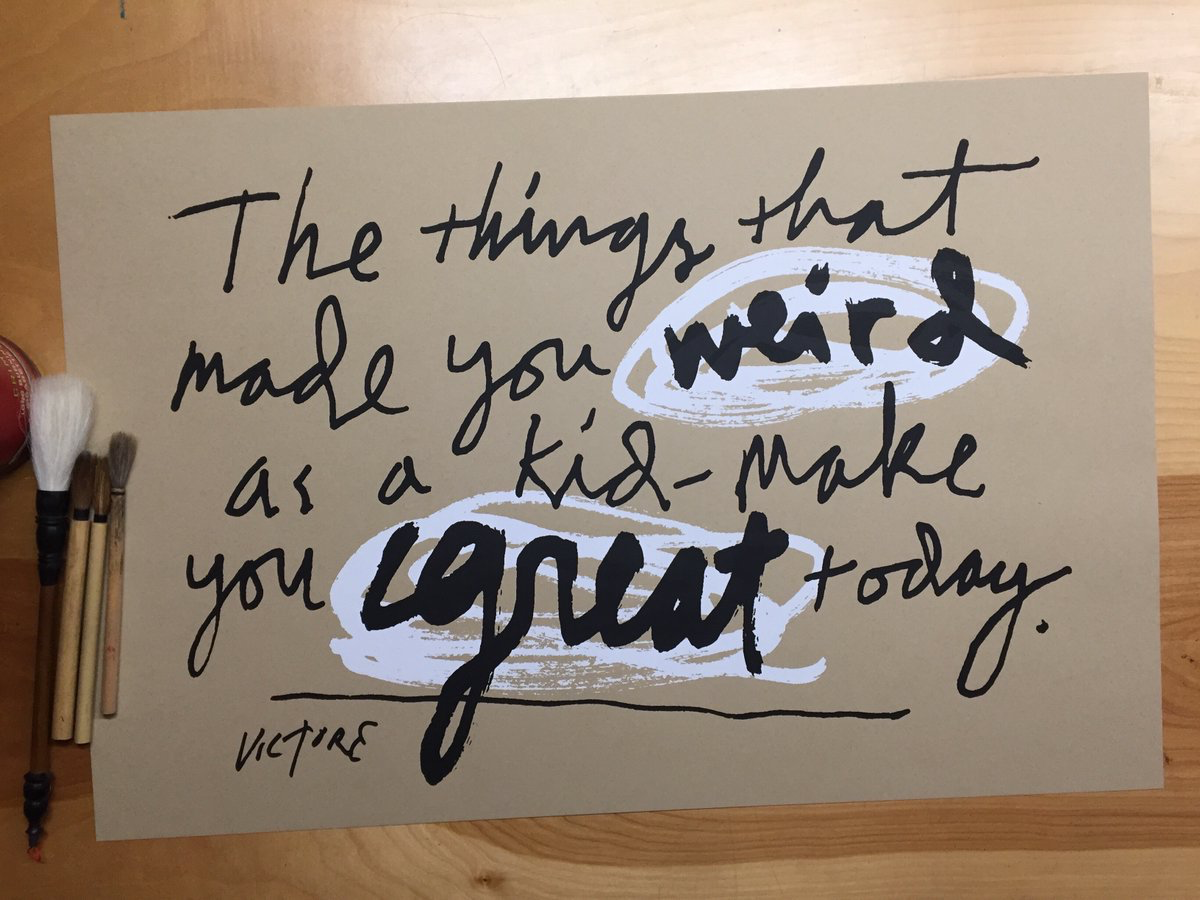 The things that
made you weird
as a kid-make
you great today.
VICTORE